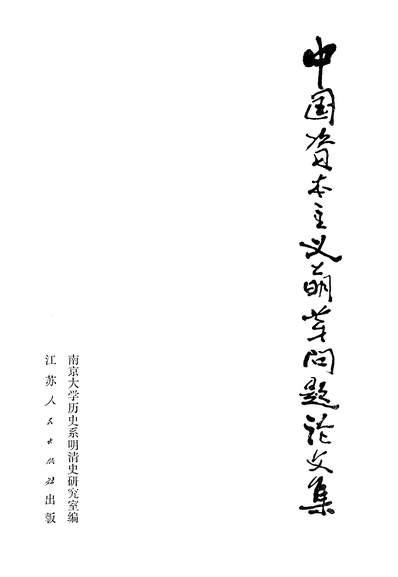 中国资本主义萌芽问题论文集
南京大学历史系明清史研究室编
江苏人民出版社出版